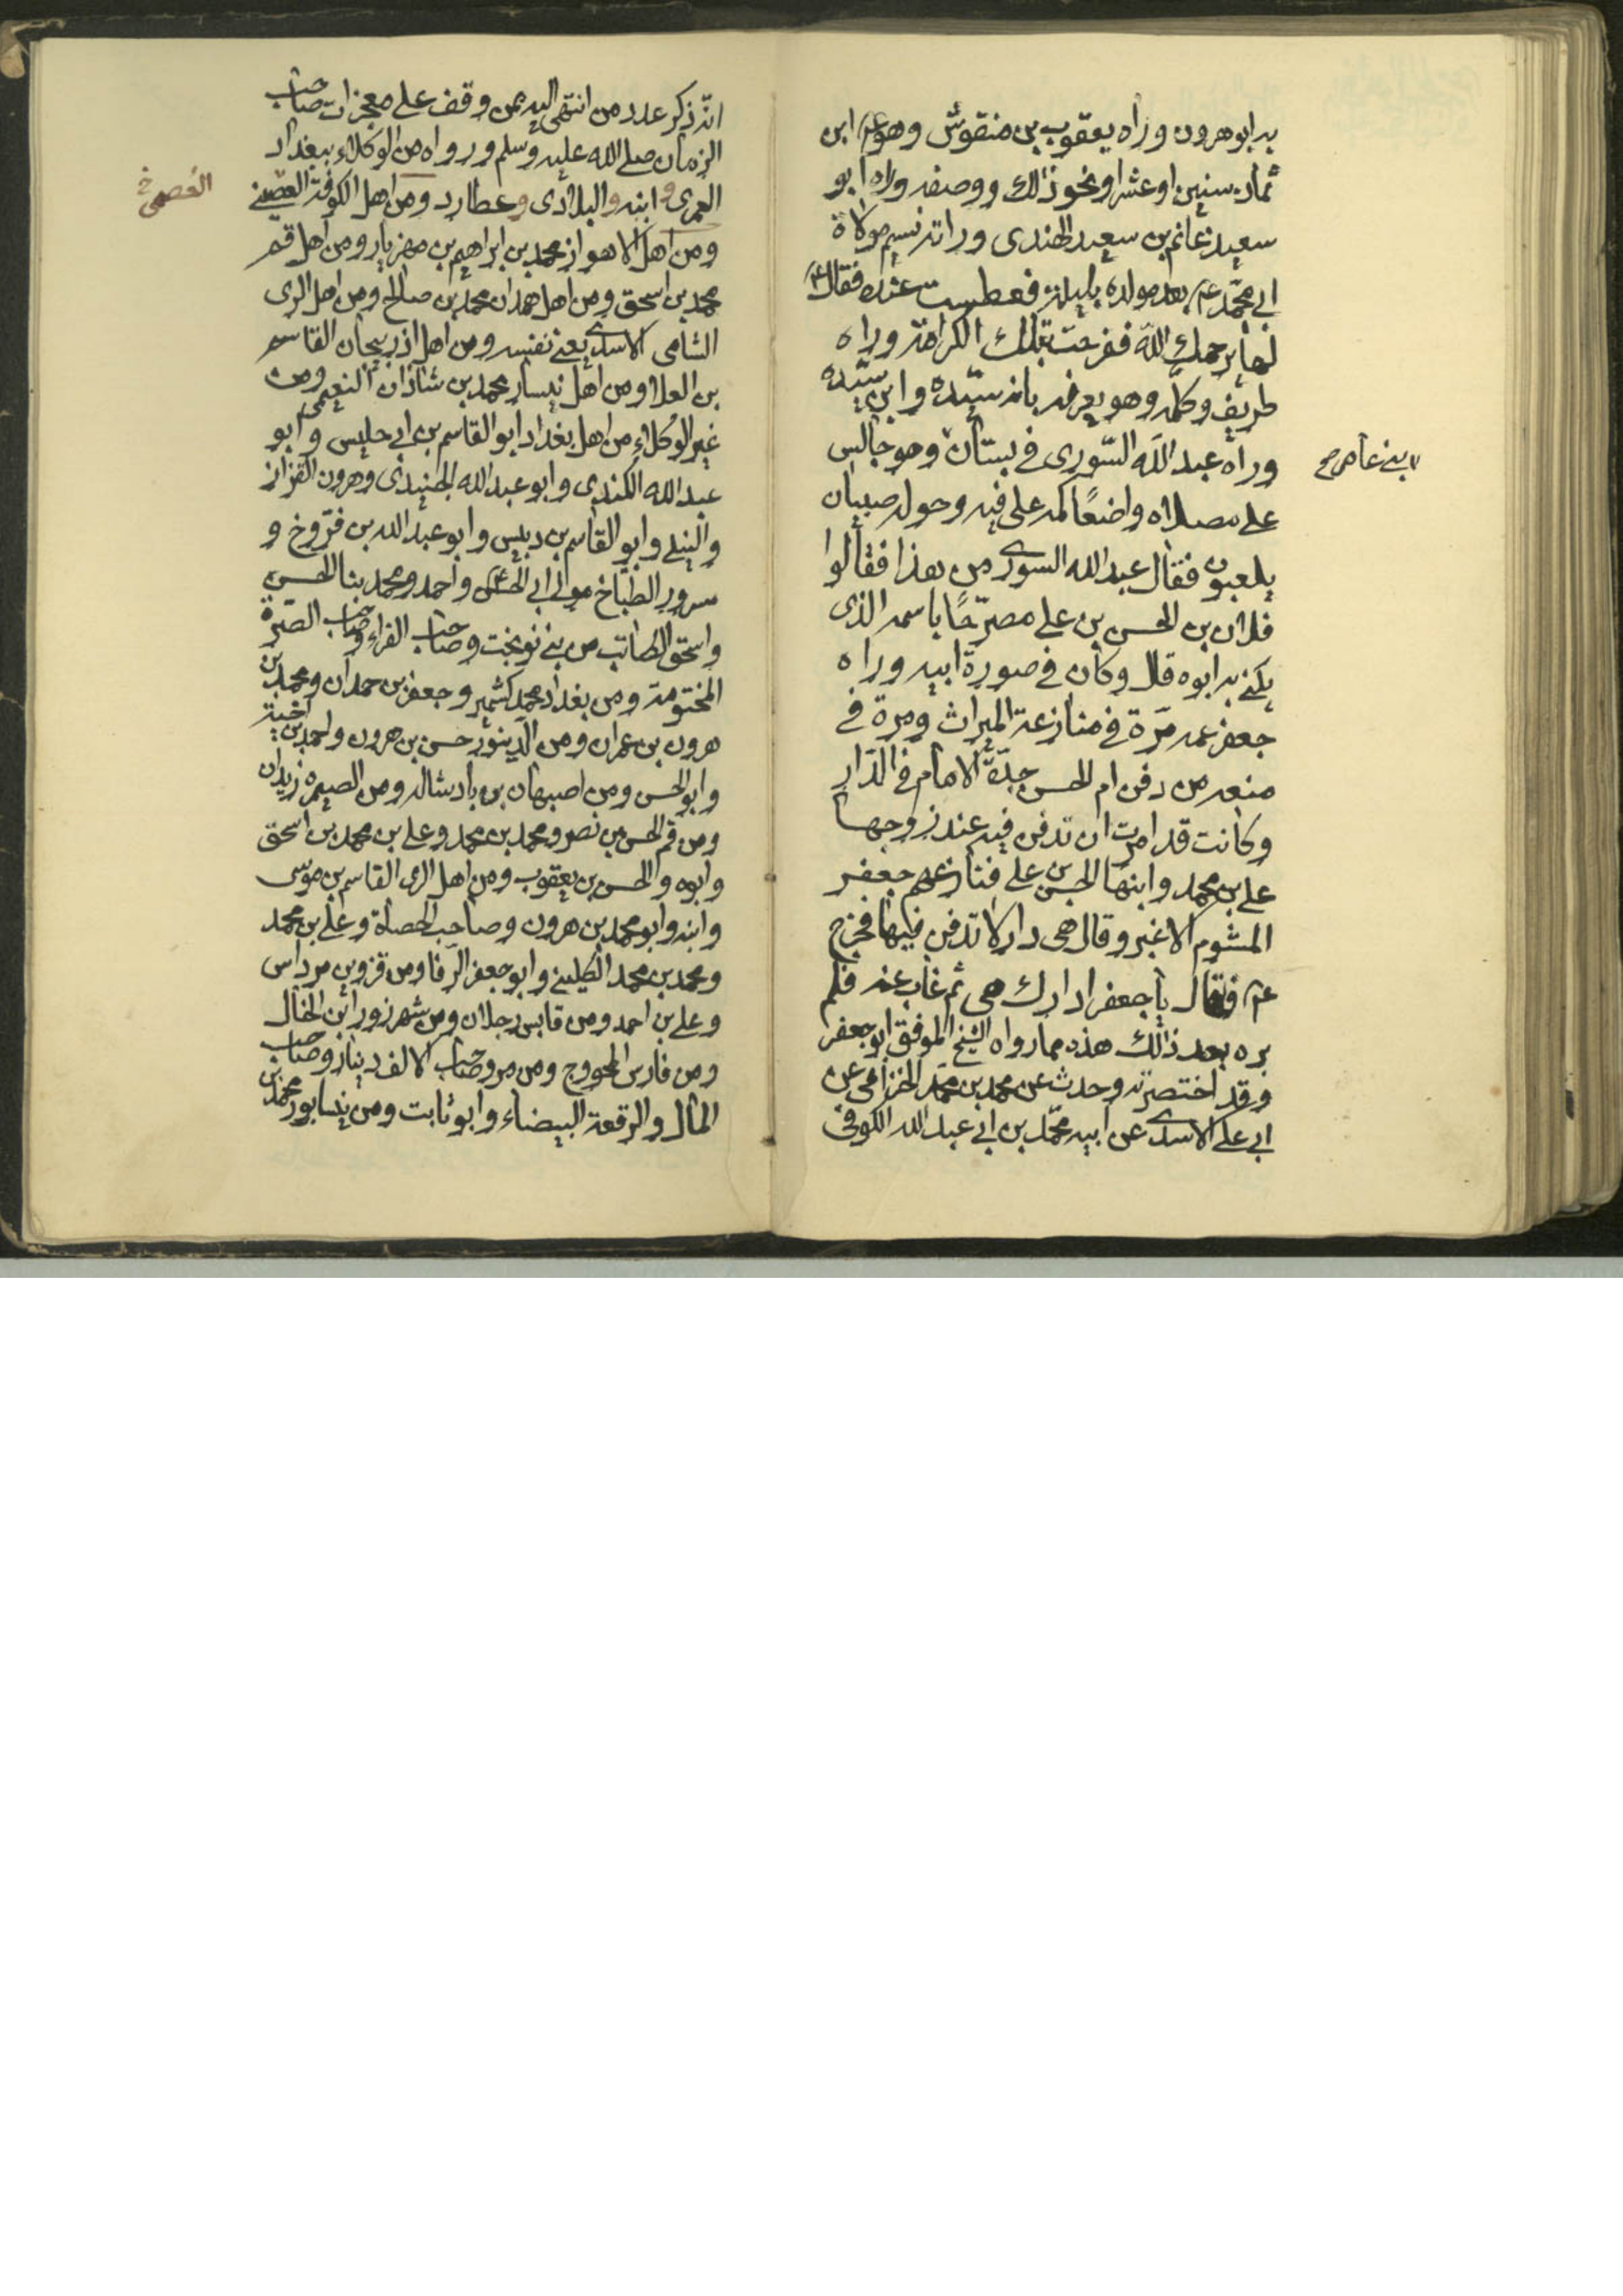 به ابو هرون وراه يعقوب بن منقوش وهو عم ابن
ثمان سنين او عشر او نحو ذلك ووصفه وراه ابو
سعيد غانم بن سعيد الهندى وراته نسيم مولاة
ابى محمد عم بعد مولده بليلة فعطست عنده فقال عم
لها يرحمك الله ففرحت بتلك الكرامة وراه
طريف وكلمه وهو يعرفه بانه سيده وابن سيده
وراه عبد الله السورى فى بستان وهو جالس
بنى عامر
على مصلاه واضعًا كمه على فيه وحوله صبيان
يلعبون فقال عبد الله السورى من هذا فقالوا
فلان بن الحسن بن على مصرّحًا باسمه الذى
يكنى به ابوه قال وكان فى صورة ابيه وراه
جعفر عمه مرّة فى منازعة الميراث ومرة فى
منعه من دفن ام الحسن جدّة الامام فى الدّار
وكانت قد امرت ان تدفن فيه عند زوجها
على بن محمد وابنها الحسن بن على فنازعهم جعفر
المشوم الاغبر وقال هى دار لا تدفن فيها فخرج
عم فقال يا جعفر ادارك هى ثم غاب عنه فلم
يره بعد ذلك هذه مما رواه الشيخ الموفق ابو جعفر
وقد اختصرته وحدث عن محمد بن محمد الخزاعى عن
ابى على الاسدى عن ابيه محمد بن ابى عبد الله الكوفى
انّه ذكر عدد من انتهى اليه ممن وقف على معجزات صاحب
الزمان صلى الله عليه وسلم ورواه من الوكلاء ببغداد
العمرى وابنه والبلادى وعطارد ومن اهل الكوفة
ومن اهل الاهواز محمد بن ابراهيم بن مهزيار ومن اهل قم
محمد بن اسحق ومن اهل همدان محمد بن صالح ومن اهل الرى
الشامى الاسدى يعنى نفسه ومن اهل اذربيجان القاسم
بن العلا ومن اهل نيسابور محمد بن شاذان النعيمى ومن
غير الوكلاء من اهل بغداد ابو القاسم بن ابى حليس وابو
عبد الله الكندى وابو عبد الله الجنيدى وهرون القزاز
والنيلى وابو القاسم بن دبيس وابو عبد الله بن فرّوخ و
سرور الطبّاخ مولى ابى الحسن واحمد ومحمد بنا الحسن
واسحق الكاتب من بنى نوبخت وصاحب الفراء وصاحب الصرّة
المختومة ومن بغداد محمد كشمير وجعفر بن حمدان ومحمد بن
هرون بن عمران ومن الدينور حسن بن هرون واحمد بن اخيه
وابو الحسن ومن اصبهان بن بادشاله ومن الصيمرة زيدان
ومن قم الحسن بن نصر ومحمد بن محمد وعلى بن محمد بن اسحق
وابوه والحسن بن يعقوب ومن اهل الرى القاسم بن موسى
وابنه وابو محمد بن هرون وصاحب الحصاة وعلى بن محمد
ومحمد بن محمد الكلينى وابو جعفر الرفا ومن قزوين مرداس
وعلى بن احمد ومن قابس رجلان ومن شهرزور ابن الخال
ومن فارس المحووج ومن مرو صاحب الالف دينار وصاحب
المال والرقعة البيضاء وابو ثابت ومن نيسابور محمد بن